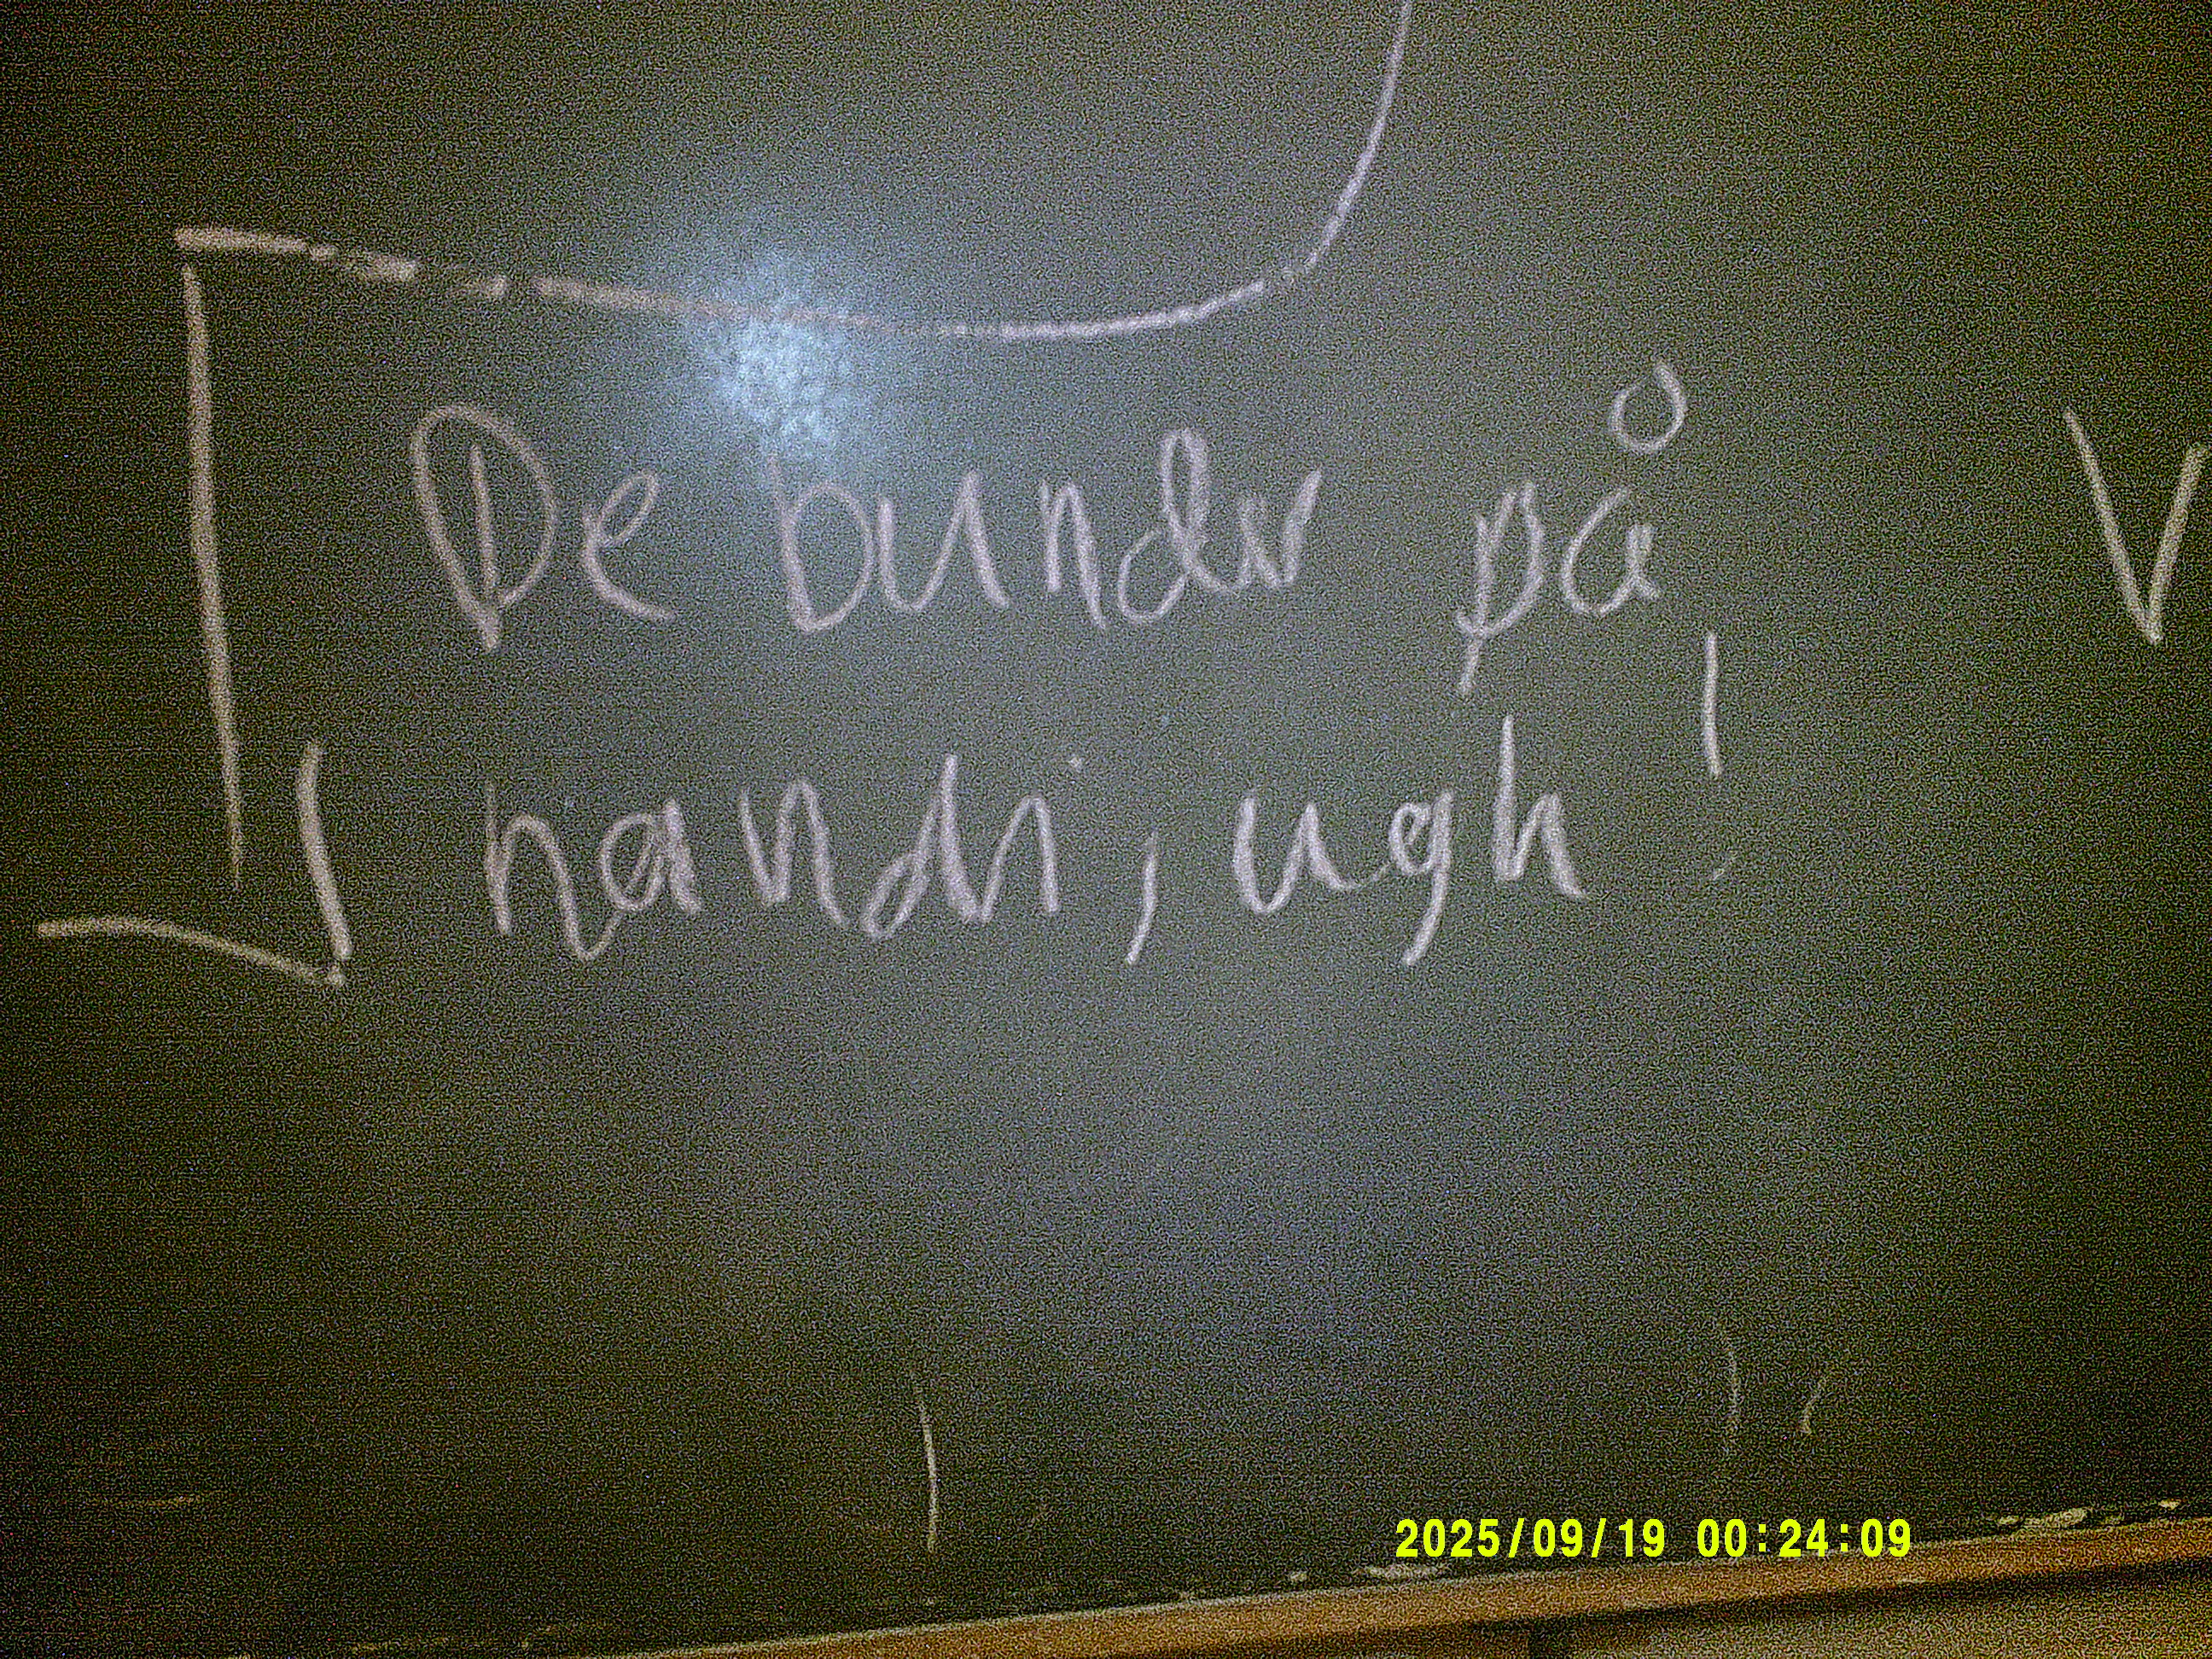 De bunder på
V
handi, ugh!
2025/09/19 00:24:09